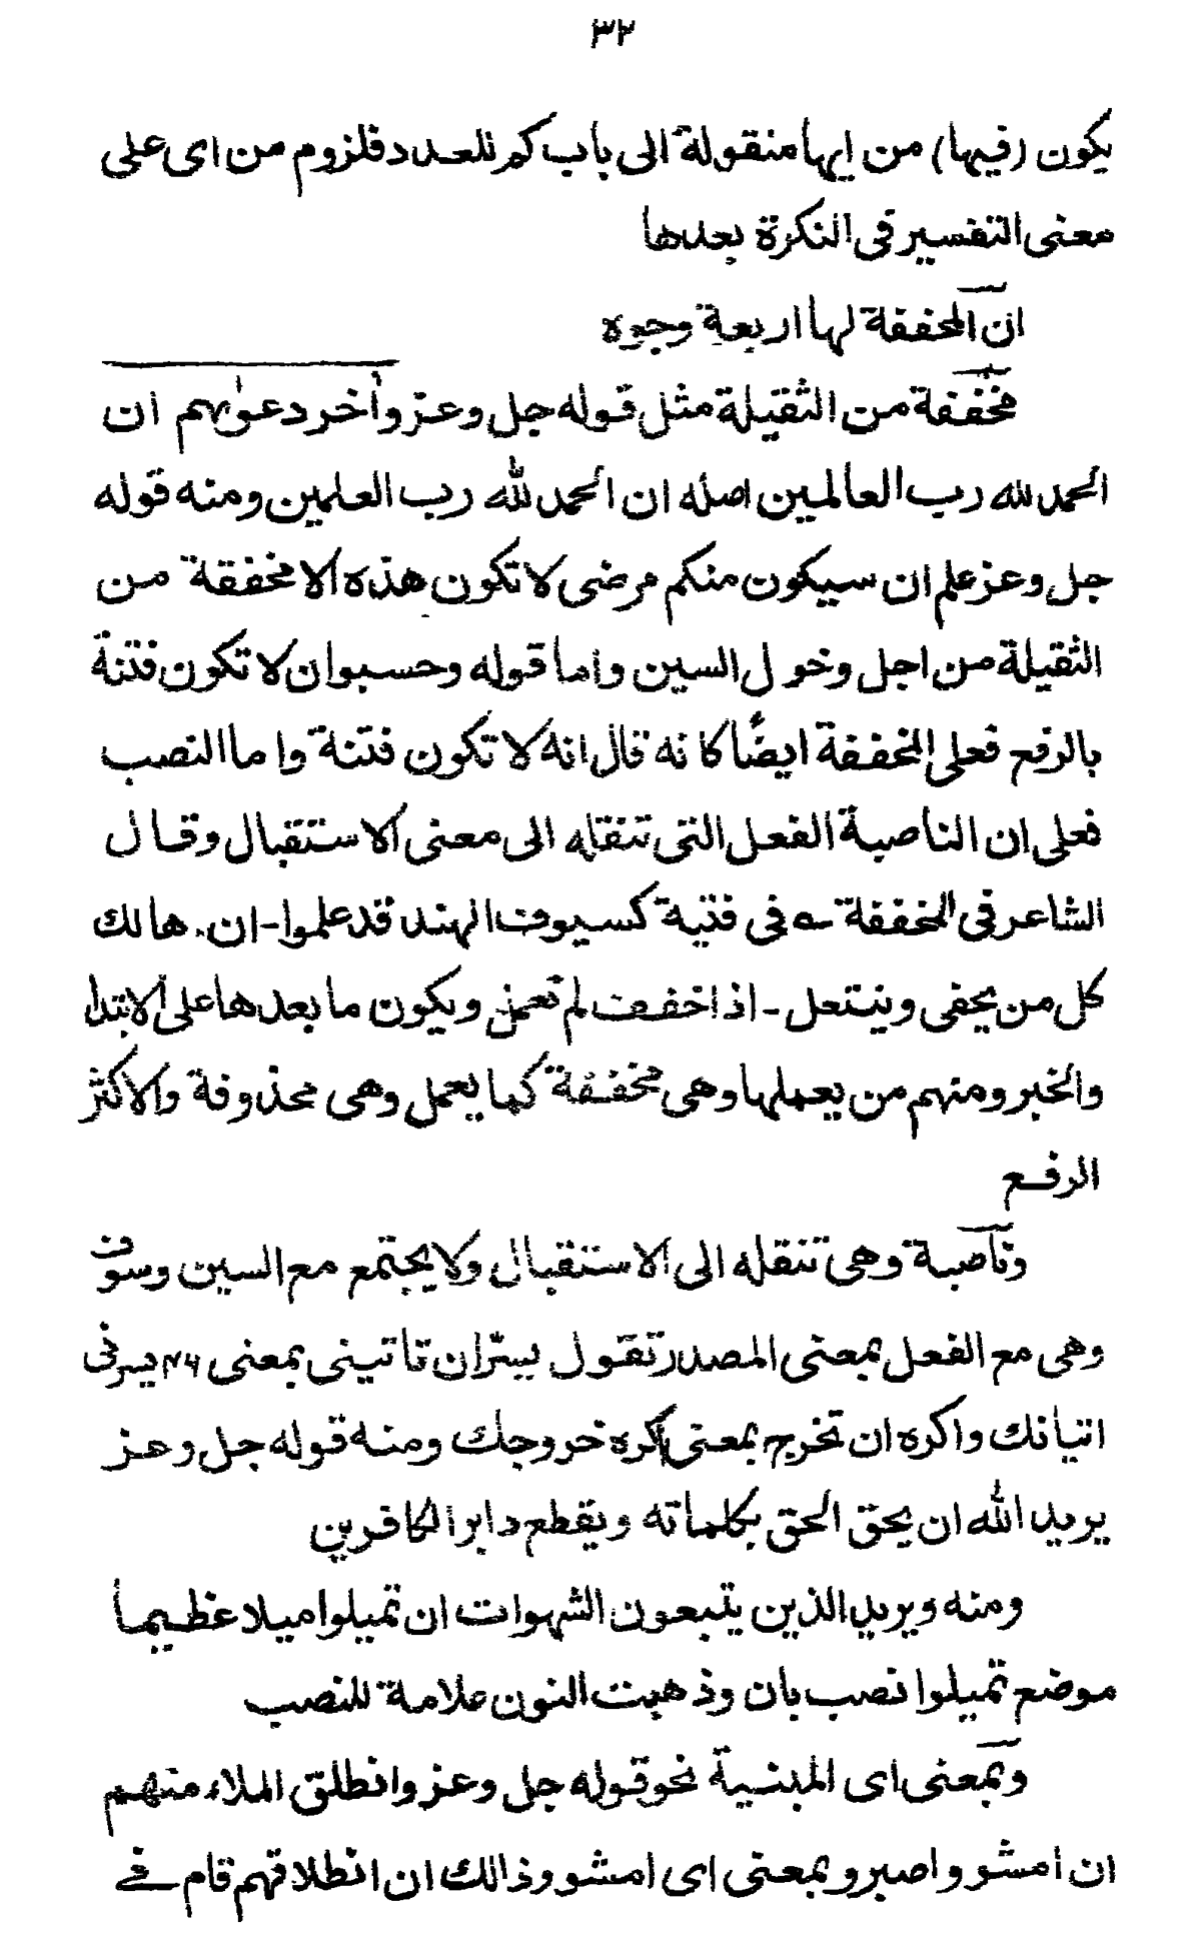 ٣٢
يكون (فيها) من ايها منقولة الى باب كم للعدد فلزوم من اى على
معنى التفسير فى النكرة بعدها
ان المخففة لها اربعة وجوه
مخففة من الثقيلة مثل قوله جل وعز وأخر دعوٰيهم ان
الحمد لله رب العالمين اصله ان الحمد لله رب العلمين ومنه قوله
جل وعز علم ان سيكون منكم مرضى لا تكون هذه الا مخففة من
الثقيلة من اجل وخول السين واما قوله وحسبوا ان لا تكون فتنة
بالرفع فعلى المخففة ايضًا كانه قال انه لا تكون فتنة واما النصب
فعلى ان الناصبة الفعل التى تنقله الى معنى الاستقبال وقال
الشاعر فى المخففة ـه فى فتية كسيوف الهند قد علموا - ان. هالك
كل من يحفى وينتعل - اذا خففت لم تعمل ويكون ما بعدها على الابتدا
والخبر ومنهم من يعملها وهى مخففة كما يعمل وهى محذوفة والاكثر
الرفع
وناصبة وهى تنقله الى الاستقبال ولا يجتمع مع السين وسوف
وهى مع الفعل بمعنى المصدر تقول يسّران تاتينى بمعنى يسرنى
اتيانك واكره ان تخرج بمعنى اكره خروجك ومنه قوله جل وعز
يريد الله ان يحق الحق بكلماته ويقطع دابر الكافرين
ومنه ويريد الذين يتبعون الشهوات ان تميلوا ميلا عظيما
موضع تميلوا نصب بان وذهبت النون علامة للنصب
وبمعنى اى المبنية نحو قوله جل وعز وانطلق الملاء منهم
ان امشو واصبرو بمعنى اى امشو وذالك ان انطلاقهم قام فى